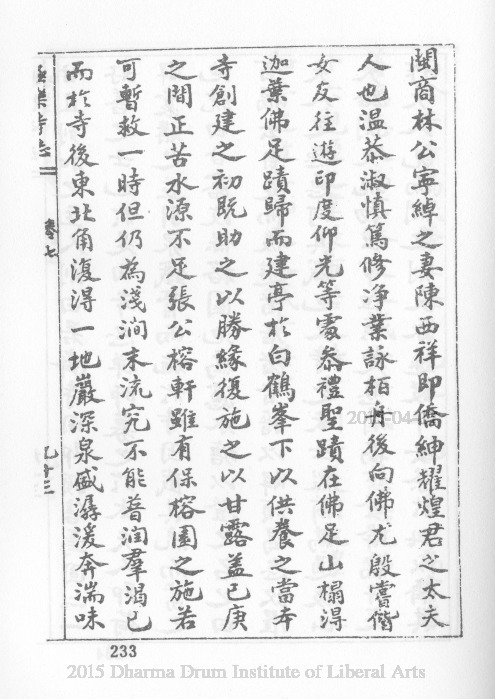 閩商林公寧綽之妻陳西祥即僑紳耀煌君之太夫
人也溫恭淑慎篤修净業詠柏舟後向佛尤殷嘗偕
女友往遊印度仰光等處叅禮聖蹟在佛足山榻得
迦葉佛足蹟歸而建亭於白鶴峯下以供養之當本
寺創建之初既助之以勝緣復施之以甘露盖已庚
之間正苦水源不足張公榕軒雖有保榕園之施若
可暫救一時但仍為淺澗末流究不能普润羣渴已
而於寺後東北角復得一地巖深泉盛潺湲奔湍味
極樂寺志
卷七
九十三
233
2015 Dharma Drum Institute of Liberal Arts